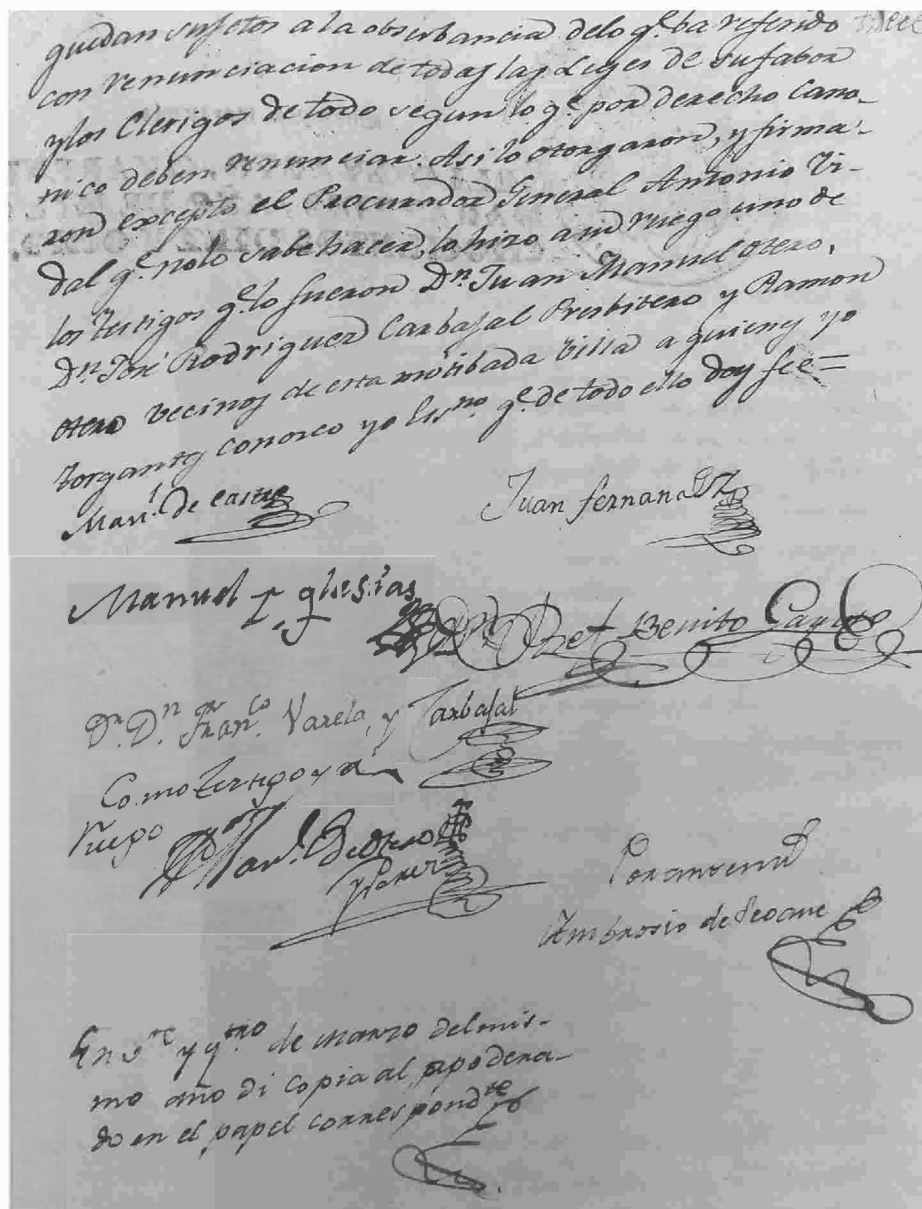 quedan sujetos a la obserbancia delo qe. ba referido
con renunciacion de todas las Leyes de sufabor
y los Clerigos de todo segun lo qe. por derecho Cano-
nico deben renunciar. Asi lo otorgaron, y firma-
ron excepto el Procurador General Antonio Vi-
dal qe. nolo sabe hacer, lo hizo a su ruego uno de
los testigos qe. lo fueron Dn. Juan Manuel Otero,
Dn. José Rodriguez Carbajal Presbitero y Ramon
Otero Vecinos de esta motibada Villa a quienes yo
torgantes conosco yo Essno. qe. de todo ello doy fee=
Manl. de Castro
Juan fernandez
Manuel Yglesias
Benito
Dr. Dn. Franco. Varela, y Carbajal
Como Testigo y a
Ruego
Manl. de Otero
y Perez
Por ante mi
Ambrosio de Seoane
En y qtro de Marzo del mis-
mo año di copia al apodera-
do en el papel correspondte